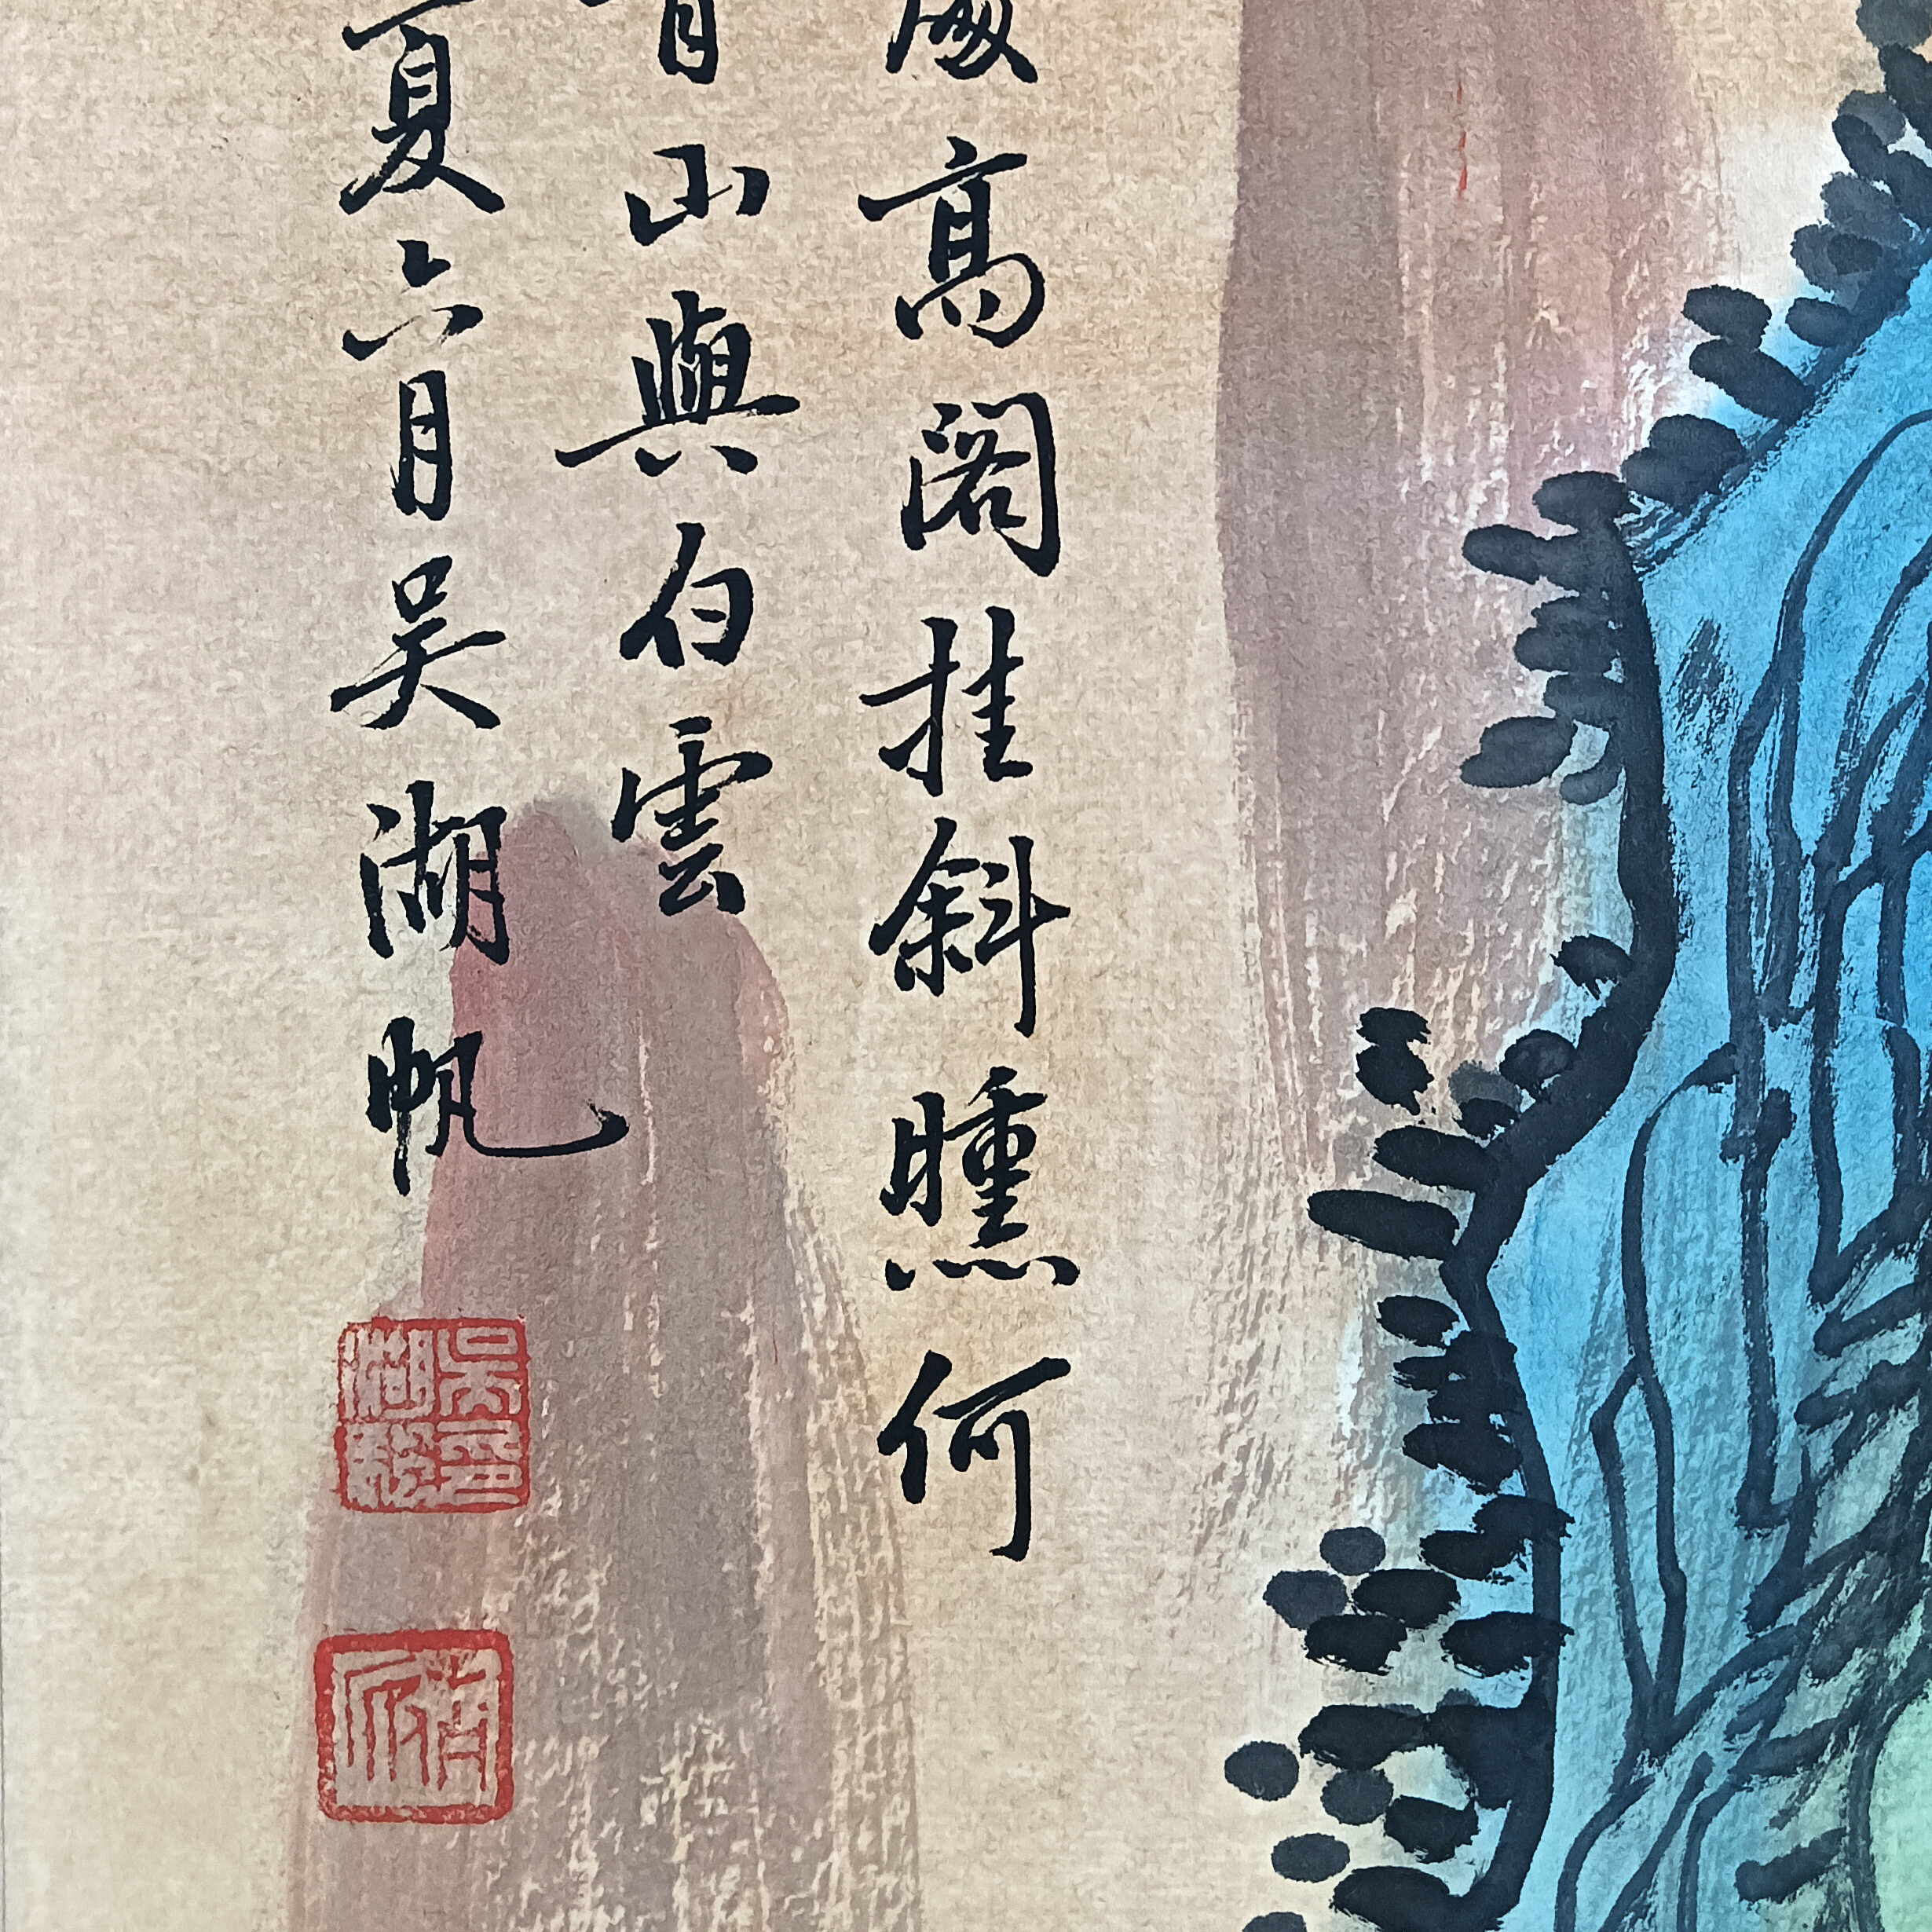 高閣挂斜曛何
山與白雲
夏六月吳湖帆
吳湖